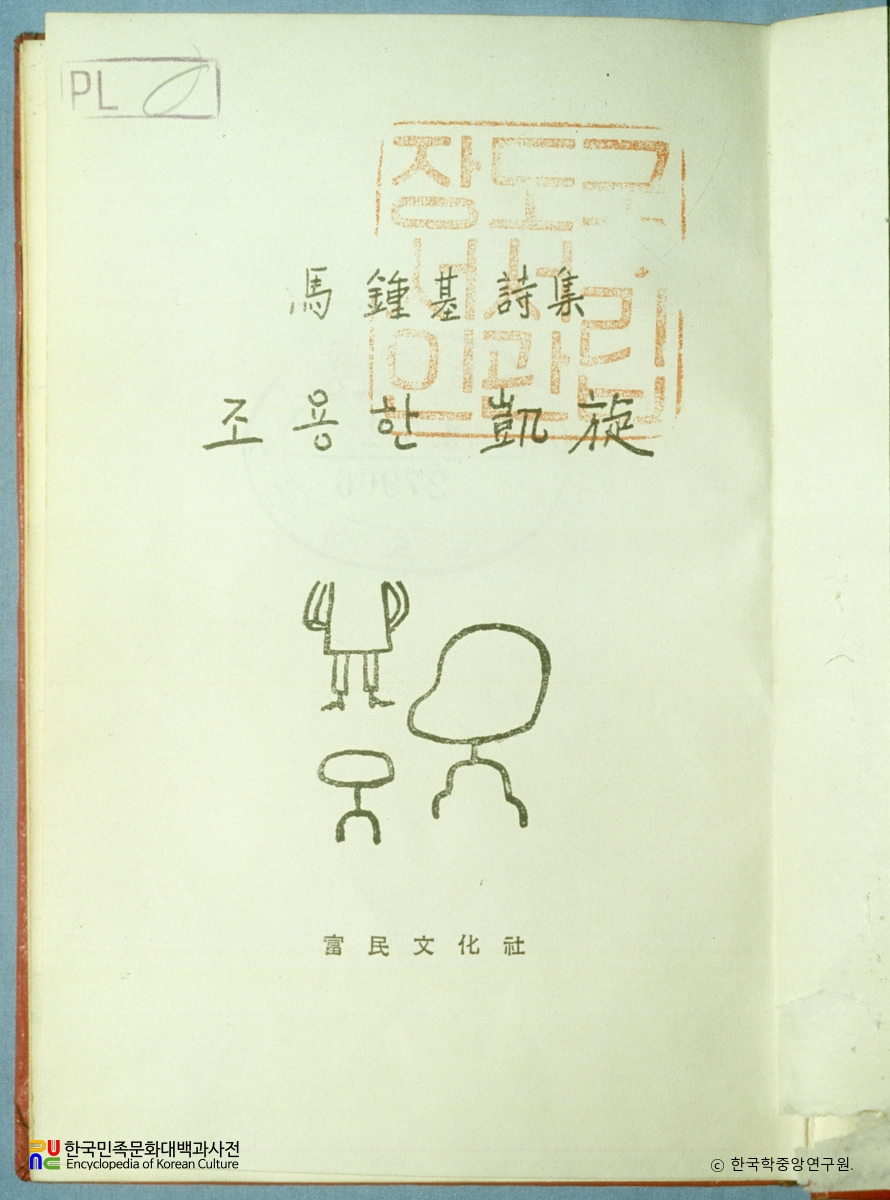 PL
국립
도서관
장서인
馬鍾基詩集
조용한 凱旋
富民文化社
한국민족문화대백과사전
Encyclopedia of Korean Culture
© 한국학중앙연구원.